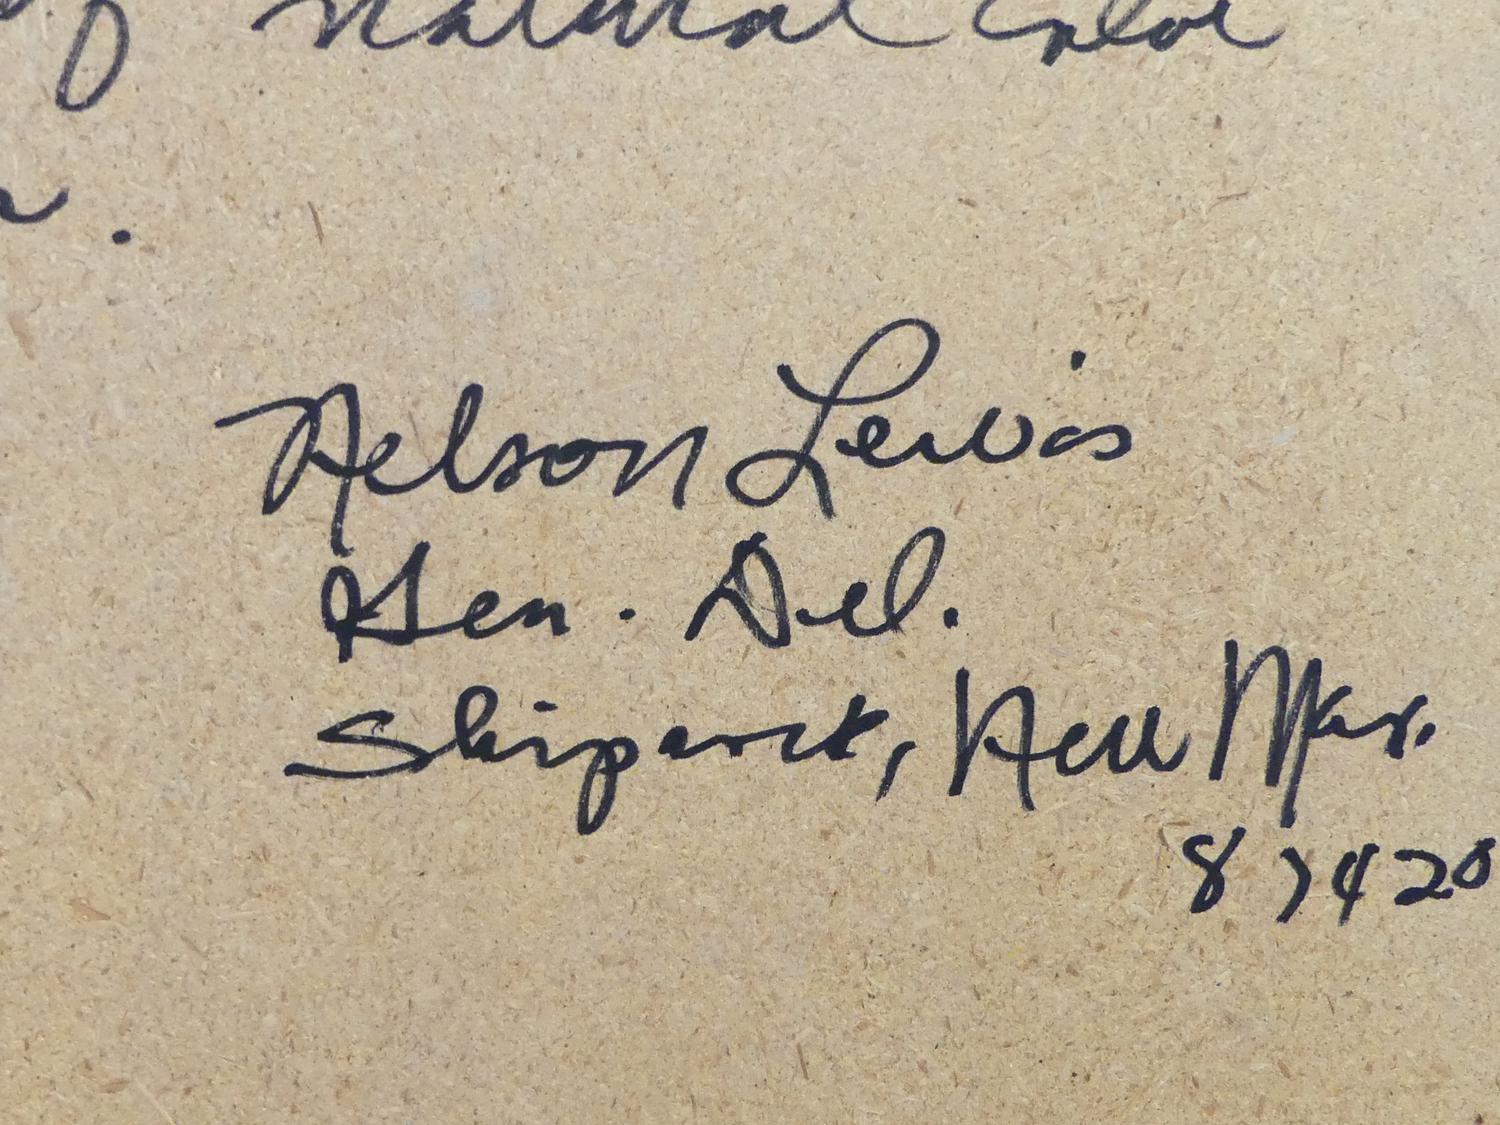 of natural color
.
Nelson Lewis
Gen. Del.
Shiprock, New Mex.
87420